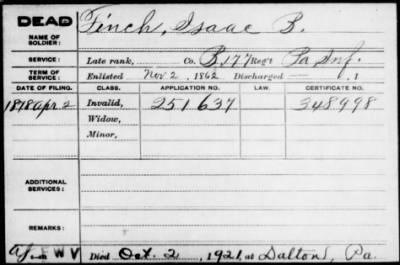 DEAD Finch, Isaac B.
NAME OF SOLDIER:
SERVICE: Late rank, Co. B, 177 Reg't Pa Inf.
TERM OF SERVICE: Enlisted Nov 2, 1862 Discharged , 1
DATE OF FILING. CLASS. APPLICATION NO. LAW. CERTIFICATE NO.
1878 Apr. 2 Invalid, 251 637 348998
Widow,
Minor,
ADDITIONAL SERVICES:
REMARKS:
F W V Died Oct. 2, 1921, at Dalton, Pa.